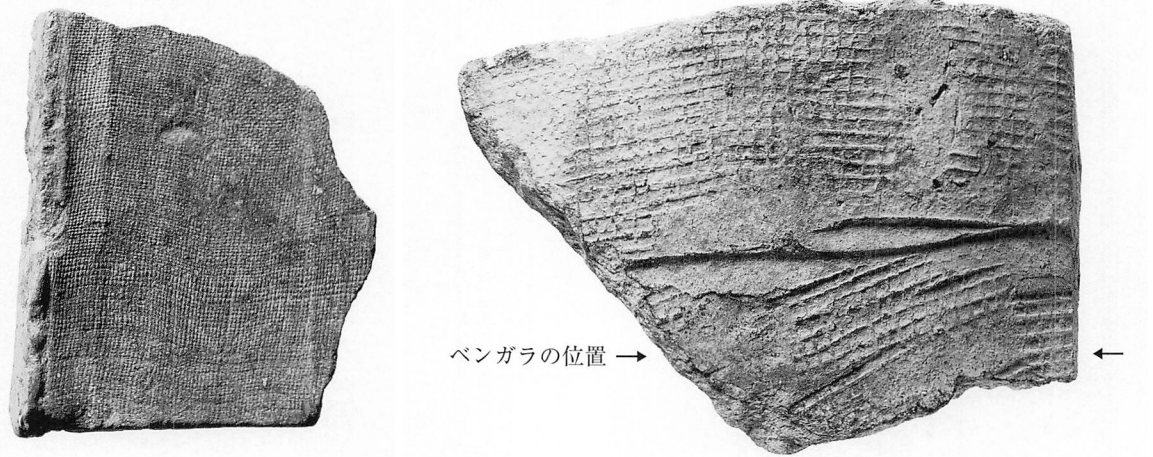 ベンガラの位置